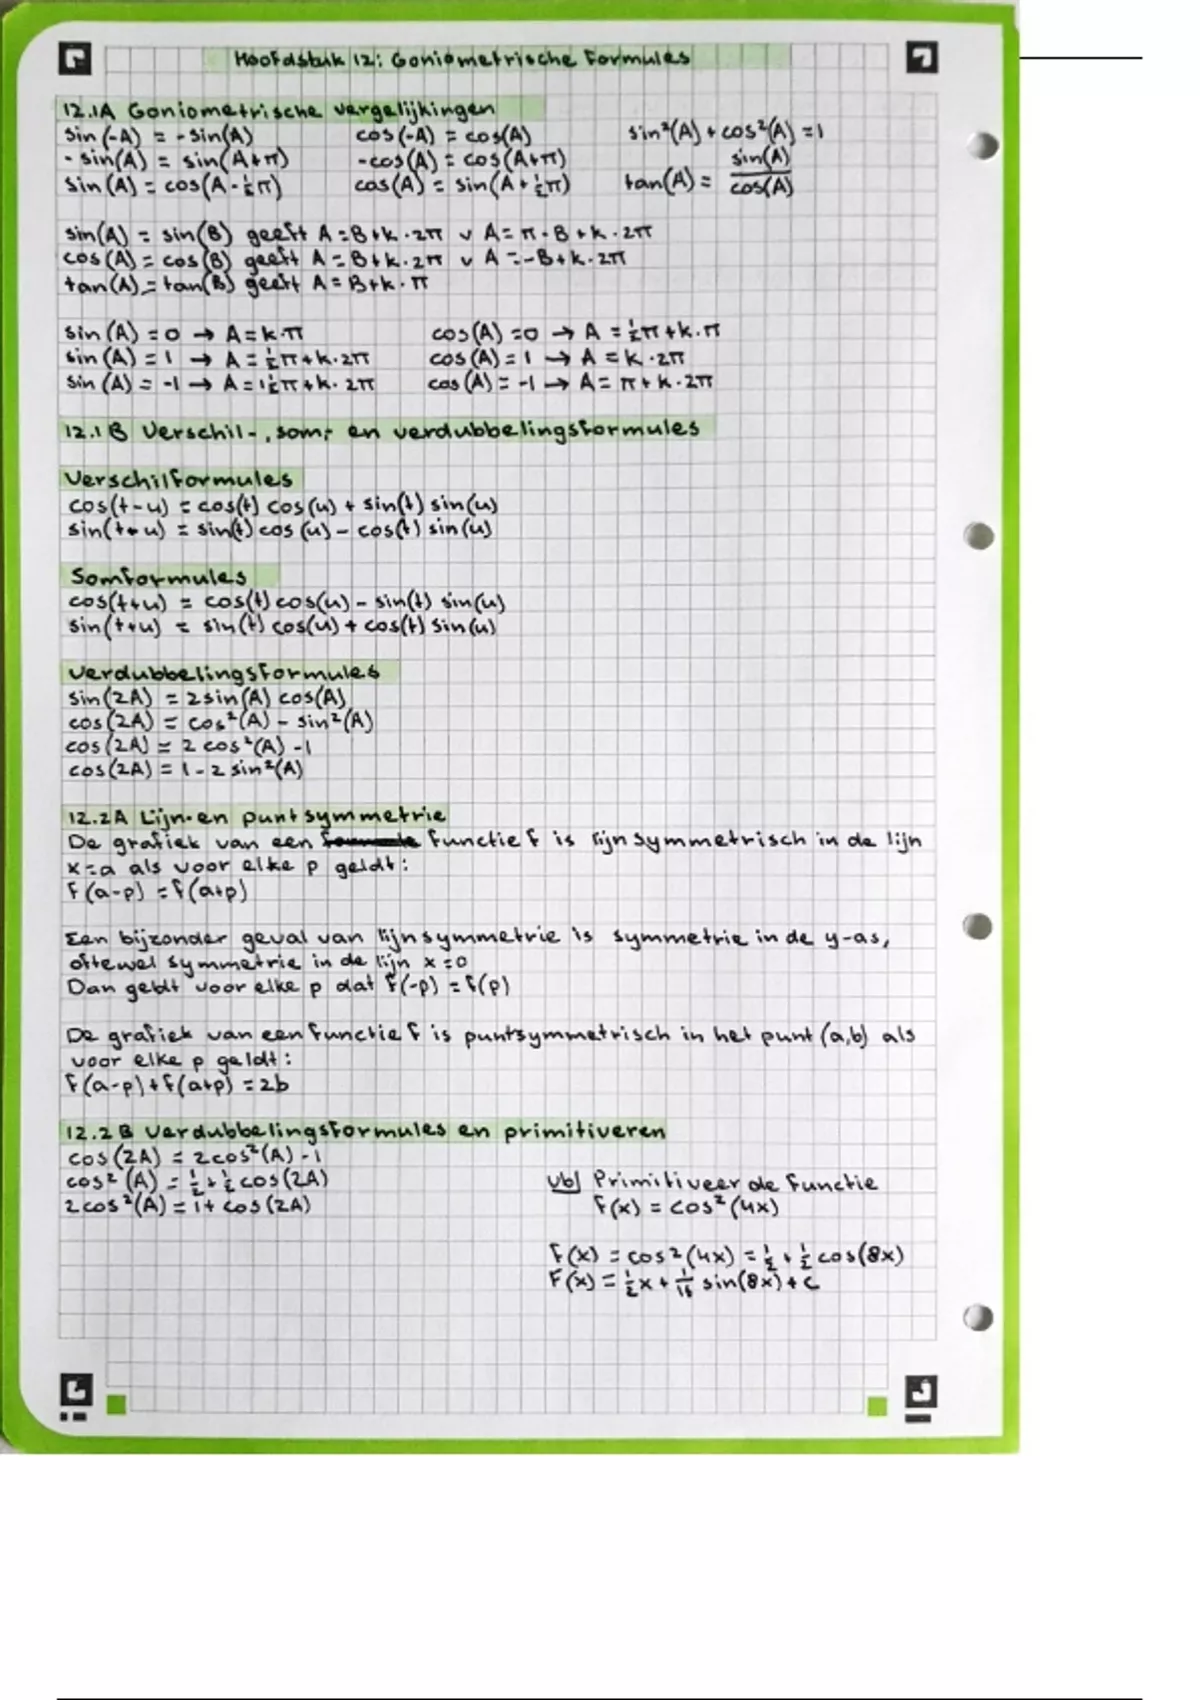 Hoofdstuk 12: Goniometrische formules
12.1A Goniometrische vergelijkingen
sin(-A) = -sin(A) cos(-A) = cos(A) sin²(A) + cos²(A) = 1
-sin(A) = sin(A+π) -cos(A) = cos(A+π)
sin(A) = cos(A-½π) cos(A) = sin(A+½π) tan(A) = sin(A)/cos(A)
sin(A) = sin(B) geeft A = B+k·2π v A = π-B+k·2π
cos(A) = cos(B) geeft A = B+k·2π v A = -B+k·2π
tan(A) = tan(B) geeft A = B+k·π
sin(A) = 0 → A = k·π cos(A) = 0 → A = ½π+k·π
sin(A) = 1 → A = ½π+k·2π cos(A) = 1 → A = k·2π
sin(A) = -1 → A = 1½π+k·2π cos(A) = -1 → A = π+k·2π
12.1B Verschil-, som- en verdubbelingsformules
Verschilformules
cos(t-u) = cos(t) cos(u) + sin(t) sin(u)
sin(t-u) = sin(t) cos(u) - cos(t) sin(u)
Somformules
cos(t+u) = cos(t) cos(u) - sin(t) sin(u)
sin(t+u) = sin(t) cos(u) + cos(t) sin(u)
Verdubbelingsformules
sin(2A) = 2sin(A) cos(A)
cos(2A) = cos²(A) - sin²(A)
cos(2A) = 2 cos²(A) -1
cos(2A) = 1 - 2 sin²(A)
12.2A Lijn- en puntsymmetrie
De grafiek van een functie f is lijnsymmetrisch in de lijn
x=a als voor elke p geldt:
f(a-p) = f(a+p)
Een bijzonder geval van lijnsymmetrie is symmetrie in de y-as,
oftewel symmetrie in de lijn x=0
Dan geldt voor elke p dat f(-p) = f(p)
De grafiek van een functie f is puntsymmetrisch in het punt (a,b) als
voor elke p geldt:
f(a-p) + f(a+p) = 2b
12.2B Verdubbelingsformules en primitiveren
cos(2A) = 2cos²(A) -1
cos²(A) = ½+½cos(2A) vb) Primitiveer de functie
2cos²(A) = 1+cos(2A) f(x) = cos²(4x)
f(x) = cos²(4x) = ½+½cos(8x)
F(x) = ½x + 1/16 sin(8x) + c